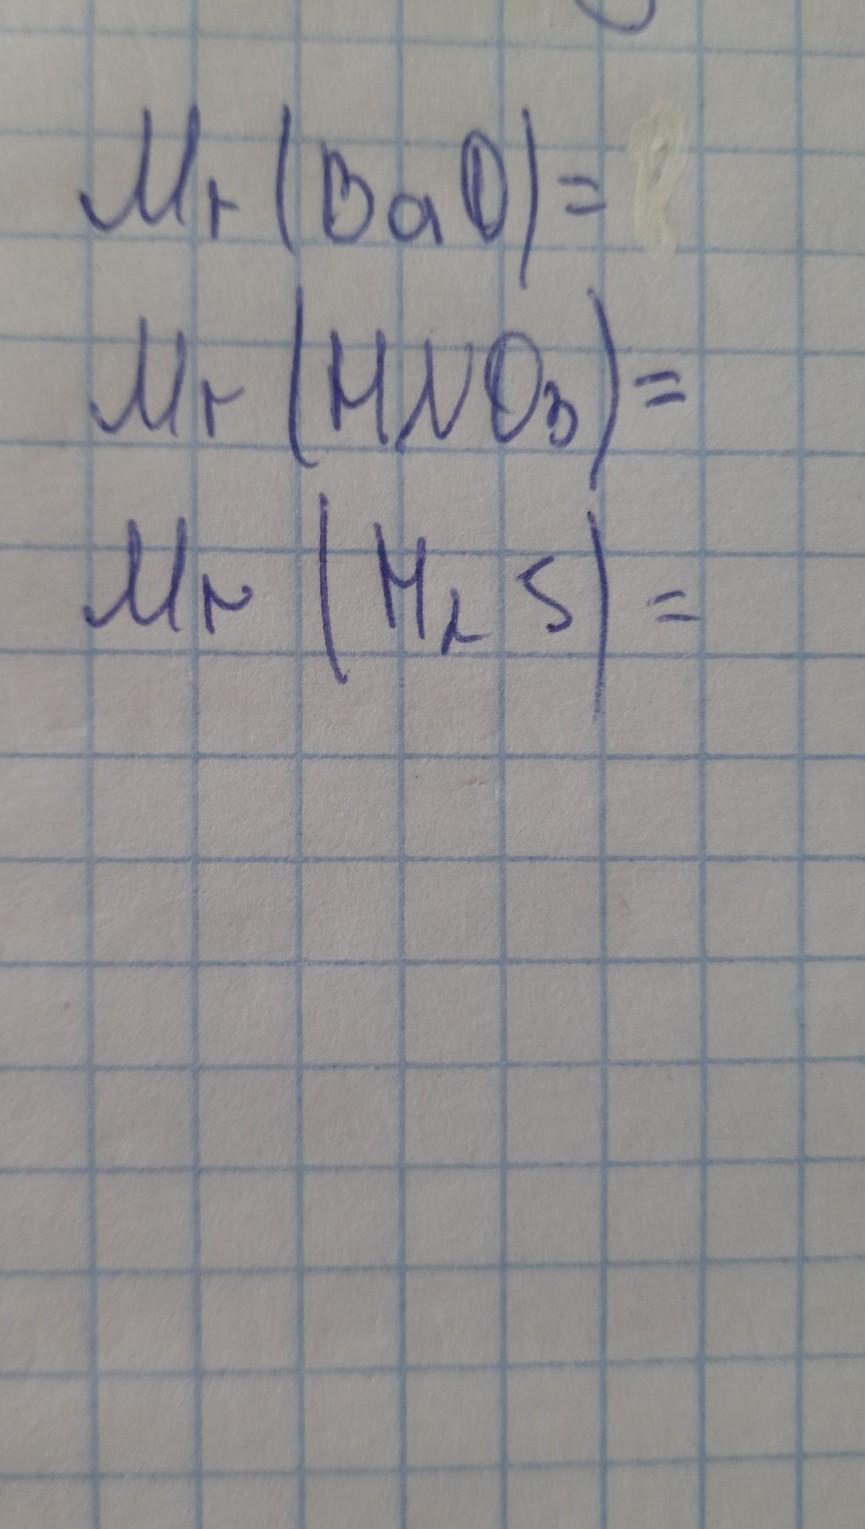 Mr (BaO) =
Mr (HNO₃) =
Mr (H₂S) =